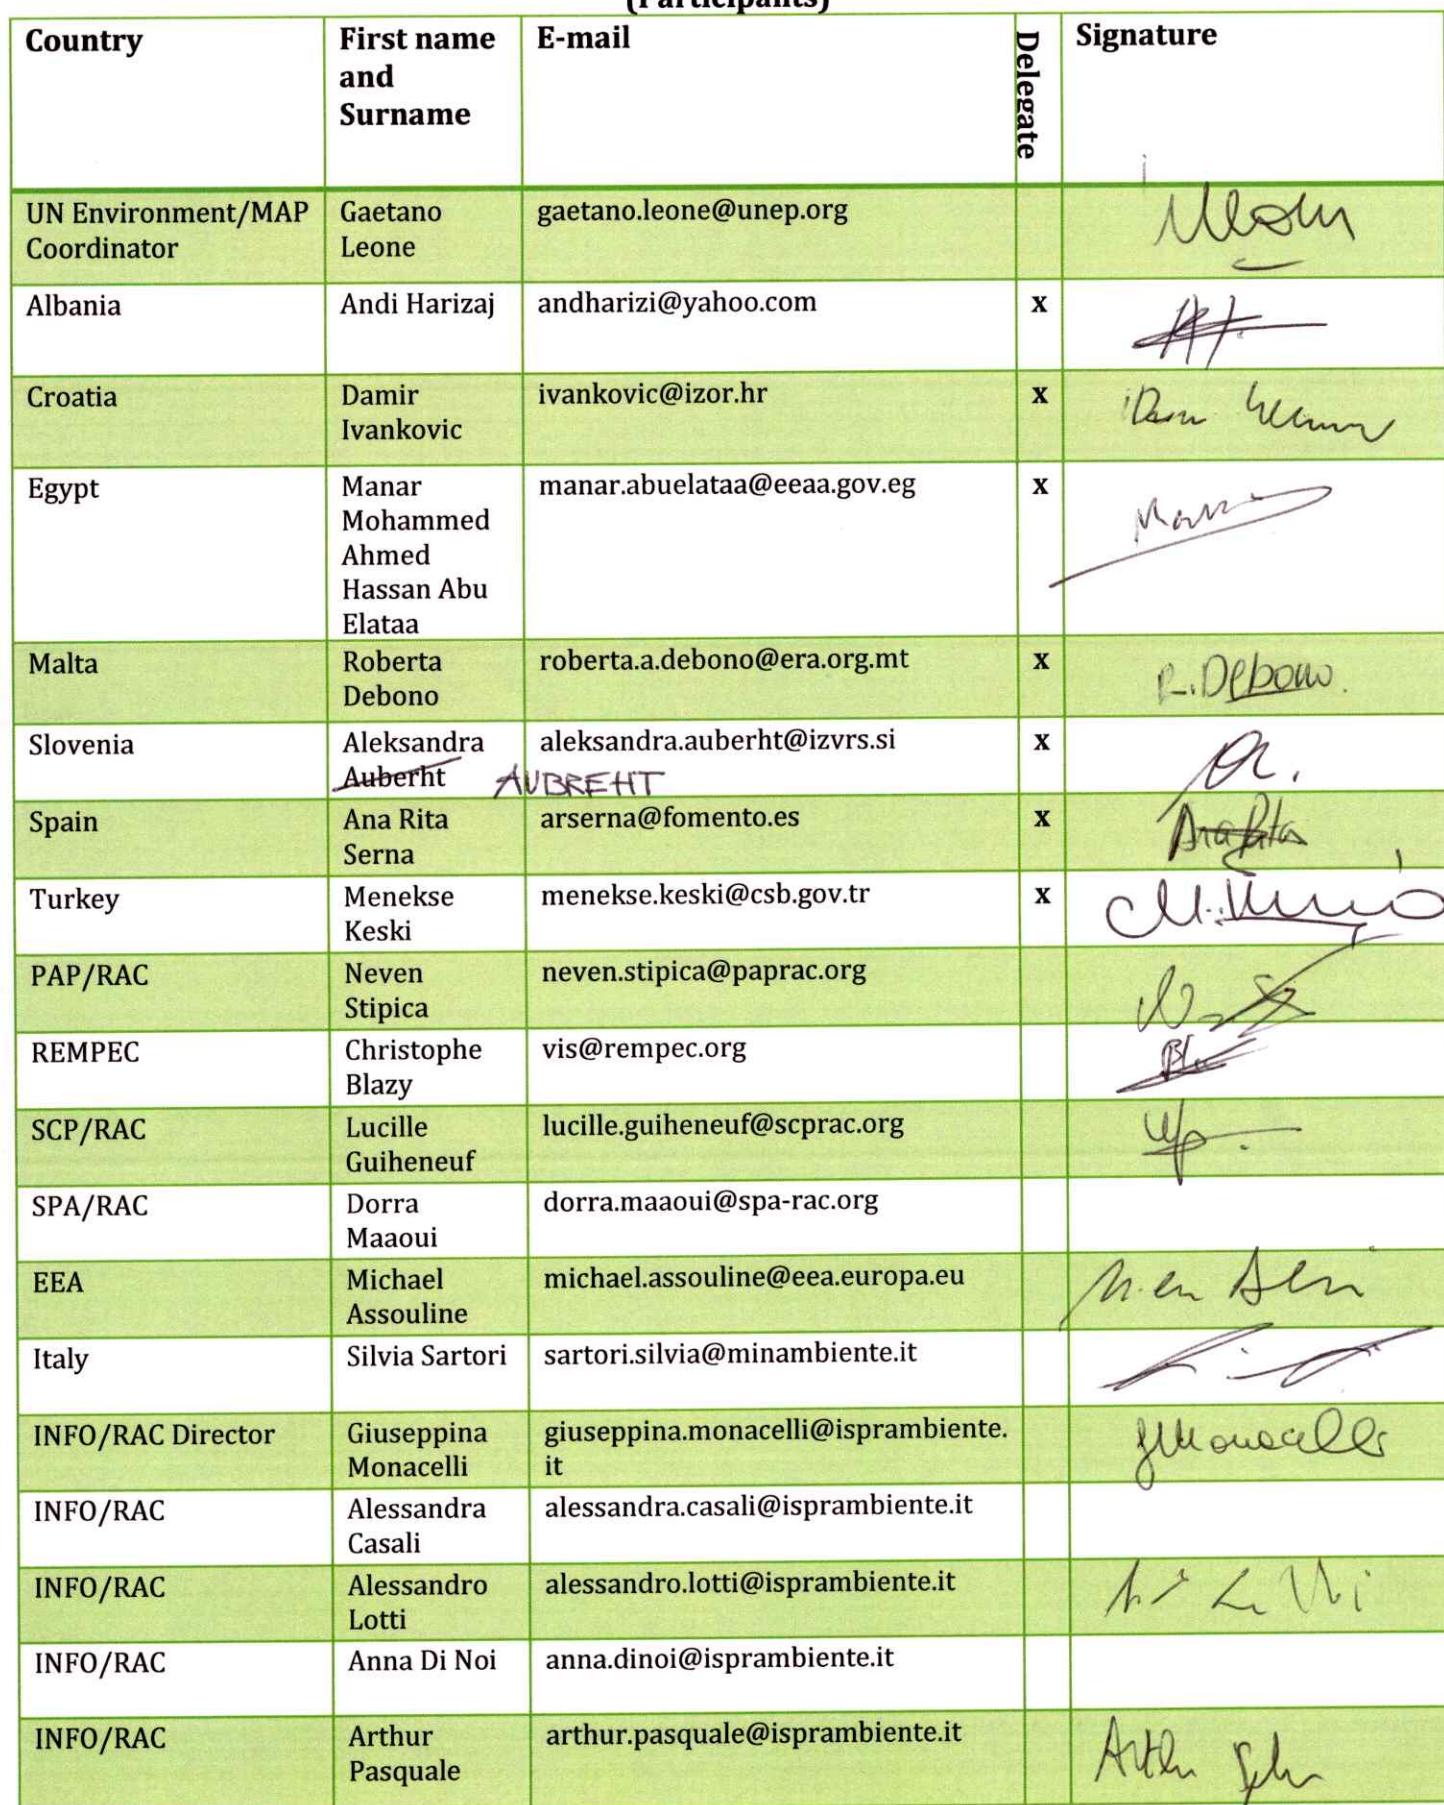 (Participants)
Country
First name
and
Surname
E-mail
Delegate
Signature
UN Environment/MAP
Coordinator
Gaetano
Leone
gaetano.leone@unep.org
Albania
Andi Harizaj
andharizi@yahoo.com
x
Croatia
Damir
Ivankovic
ivankovic@izor.hr
x
Egypt
Manar
Mohammed
Ahmed
Hassan Abu
Elataa
manar.abuelataa@eeaa.gov.eg
x
Malta
Roberta
Debono
roberta.a.debono@era.org.mt
x
R. Debono.
Slovenia
Aleksandra
Auberht
AUBREHT
aleksandra.auberht@izvrs.si
x
Spain
Ana Rita
Serna
arserna@fomento.es
x
Ana Rita
Turkey
Menekse
Keski
menekse.keski@csb.gov.tr
x
PAP/RAC
Neven
Stipica
neven.stipica@paprac.org
REMPEC
Christophe
Blazy
vis@rempec.org
SCP/RAC
Lucille
Guiheneuf
lucille.guiheneuf@scprac.org
SPA/RAC
Dorra
Maaoui
dorra.maaoui@spa-rac.org
EEA
Michael
Assouline
michael.assouline@eea.europa.eu
Italy
Silvia Sartori
sartori.silvia@minambiente.it
INFO/RAC Director
Giuseppina
Monacelli
giuseppina.monacelli@isprambiente.
it
INFO/RAC
Alessandra
Casali
alessandra.casali@isprambiente.it
INFO/RAC
Alessandro
Lotti
alessandro.lotti@isprambiente.it
INFO/RAC
Anna Di Noi
anna.dinoi@isprambiente.it
INFO/RAC
Arthur
Pasquale
arthur.pasquale@isprambiente.it